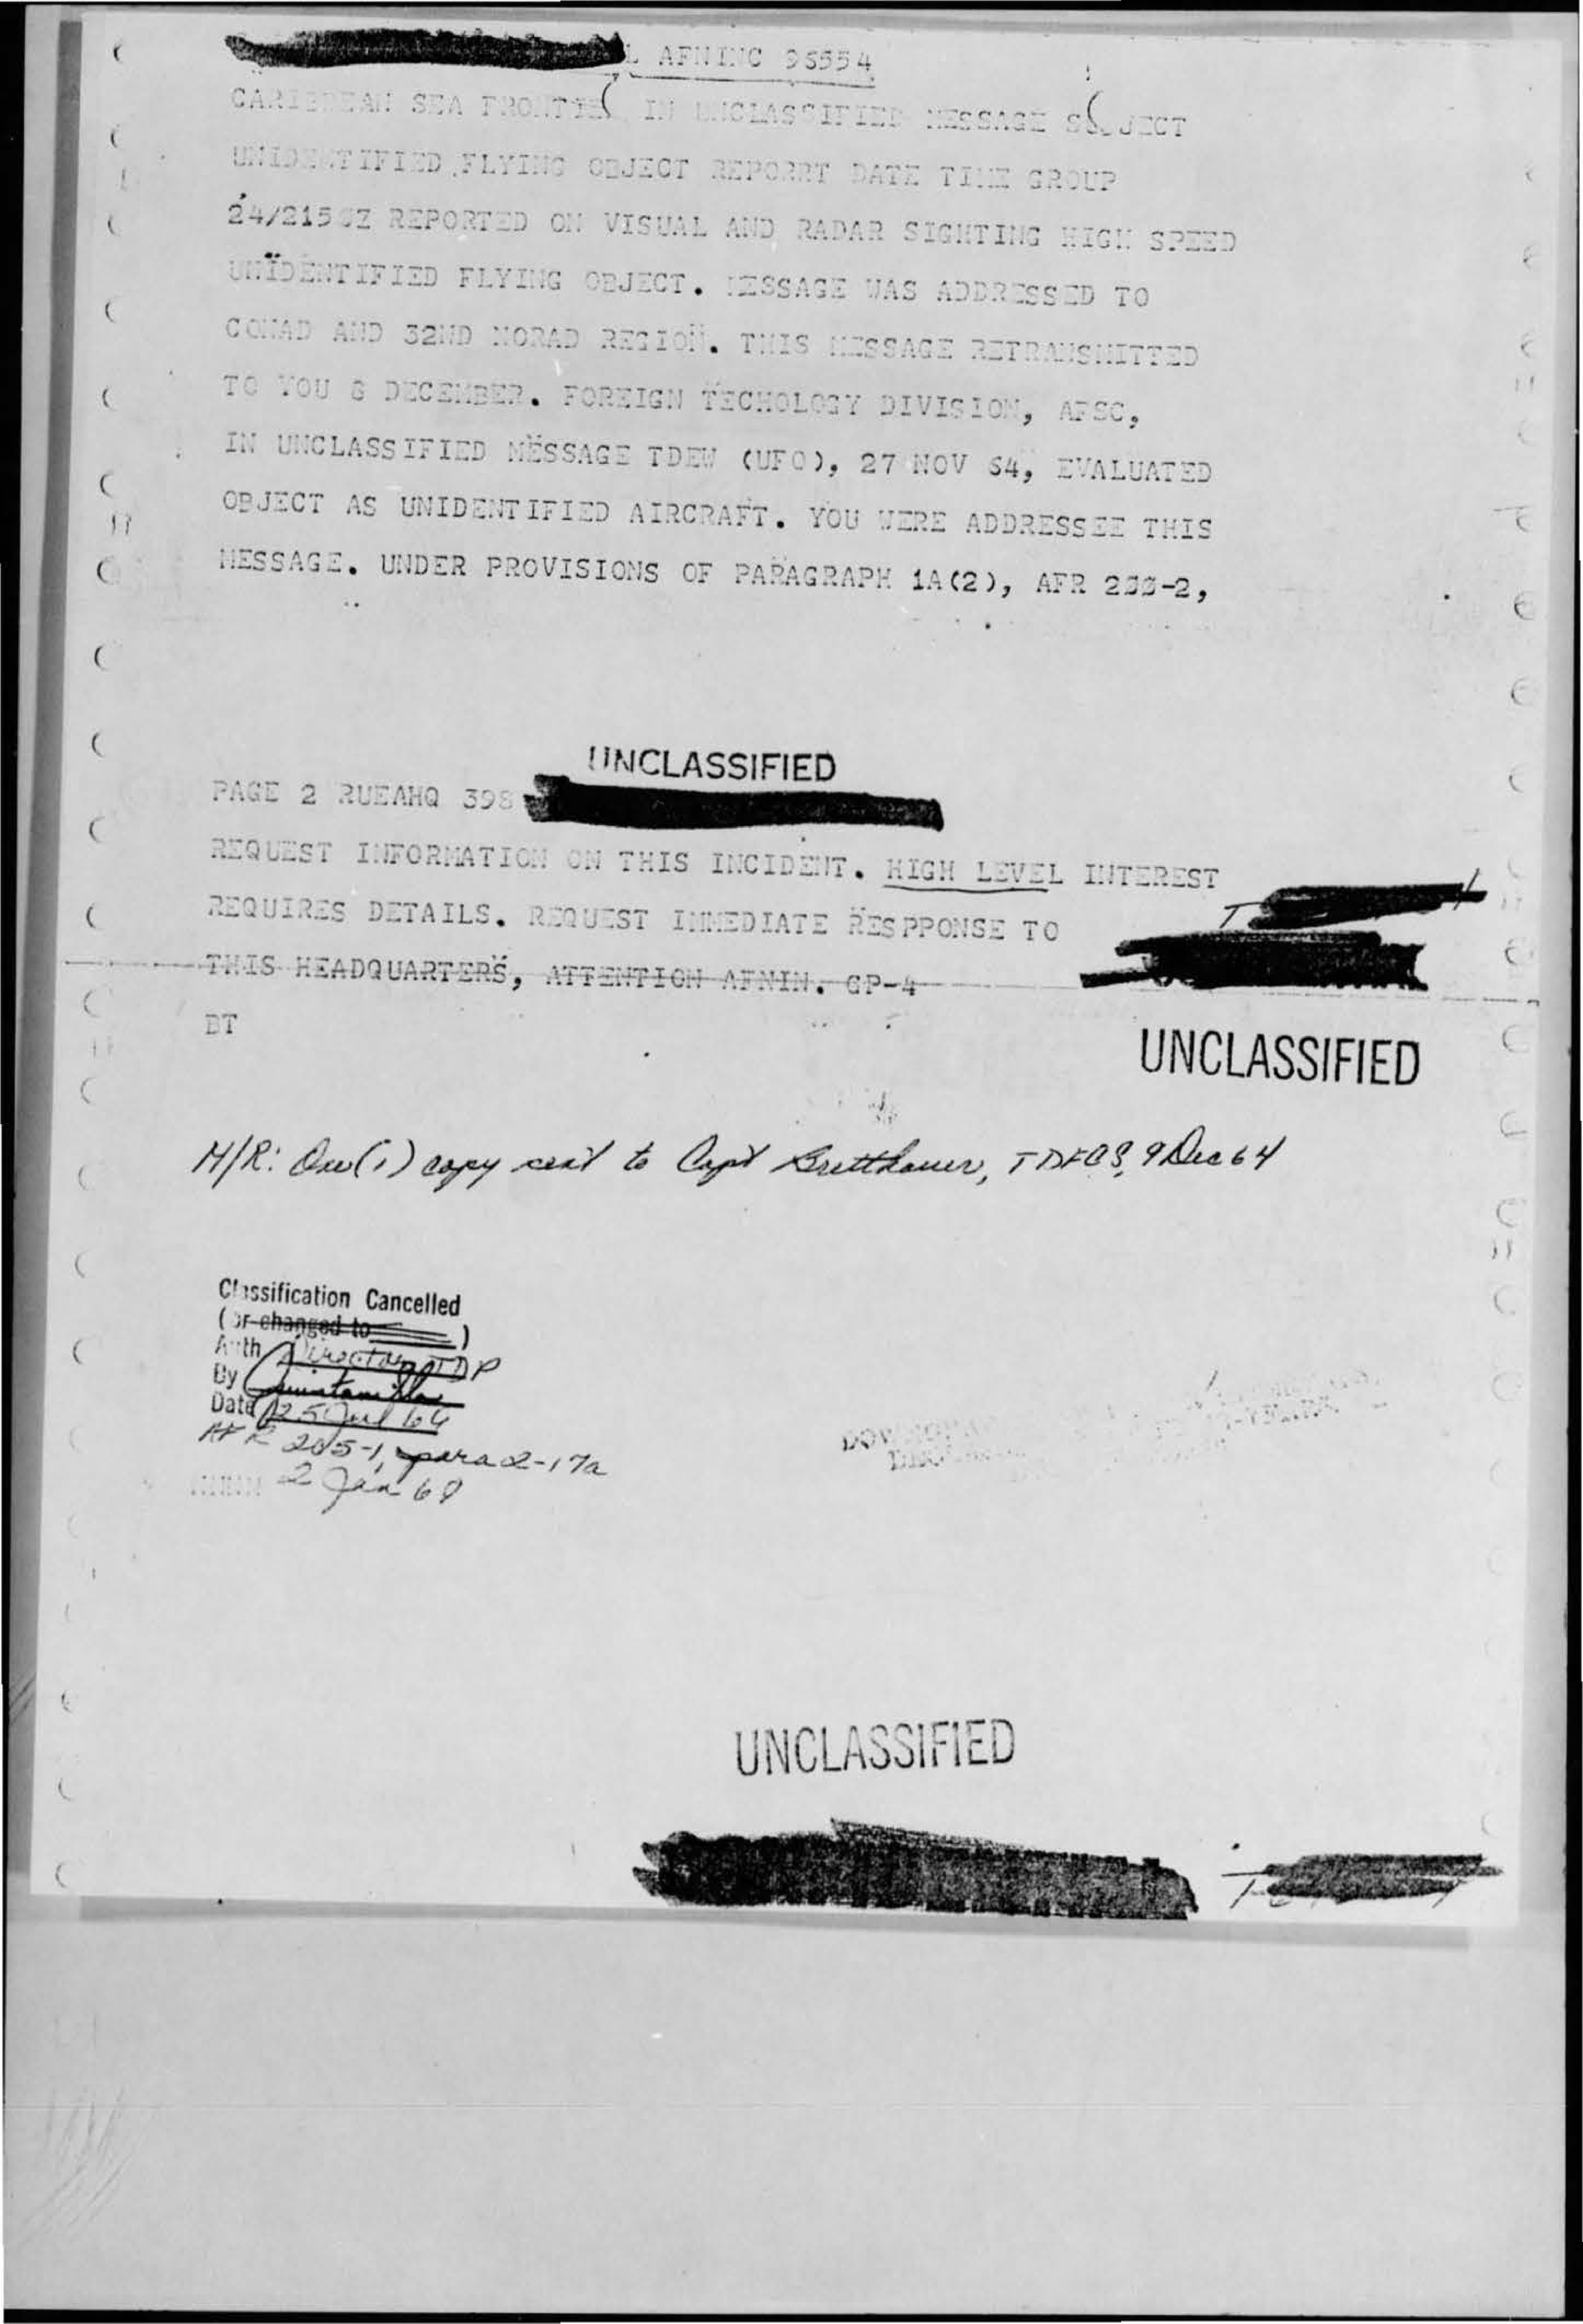 AFNINC 98554
CARIBBEAN SEA FRONTIER IN UNCLASSIFIED MESSAGE SUBJECT
UNIDENTIFIED FLYING OBJECT REPORRT DATE TIME GROUP
24/2150Z REPORTED ON VISUAL AND RADAR SIGHTING HIGH SPEED
UNIDENTIFIED FLYING OBJECT. MESSAGE WAS ADDRESSED TO
CONAD AND 32ND NORAD REGION. THIS MESSAGE RETRANSMITTED
TO YOU 8 DECEMBER. FOREIGN TECHOLOGY DIVISION, AFSC,
IN UNCLASSIFIED MESSAGE TDEW (UFO), 27 NOV 64, EVALUATED
OBJECT AS UNIDENTIFIED AIRCRAFT. YOU WERE ADDRESSEE THIS
MESSAGE. UNDER PROVISIONS OF PARAGRAPH 1A(2), AFR 200-2,
UNCLASSIFIED
PAGE 2 RUEAHQ 398
REQUEST INFORMATION ON THIS INCIDENT. HIGH LEVEL INTEREST
REQUIRES DETAILS. REQUEST IMMEDIATE RESPPONSE TO
THIS HEADQUARTERS, ATTENTION AFNIN. GP-4
BT
UNCLASSIFIED
M/R: One (1) copy sent to Capt Bretthauer, 9 Dec 64
Classification Cancelled
(or changed to )
Auth Director TDP
By Quintanilla
Date 25 Jul 66
AFR 205-1, para 2-17a
2 Jan 68
UNCLASSIFIED